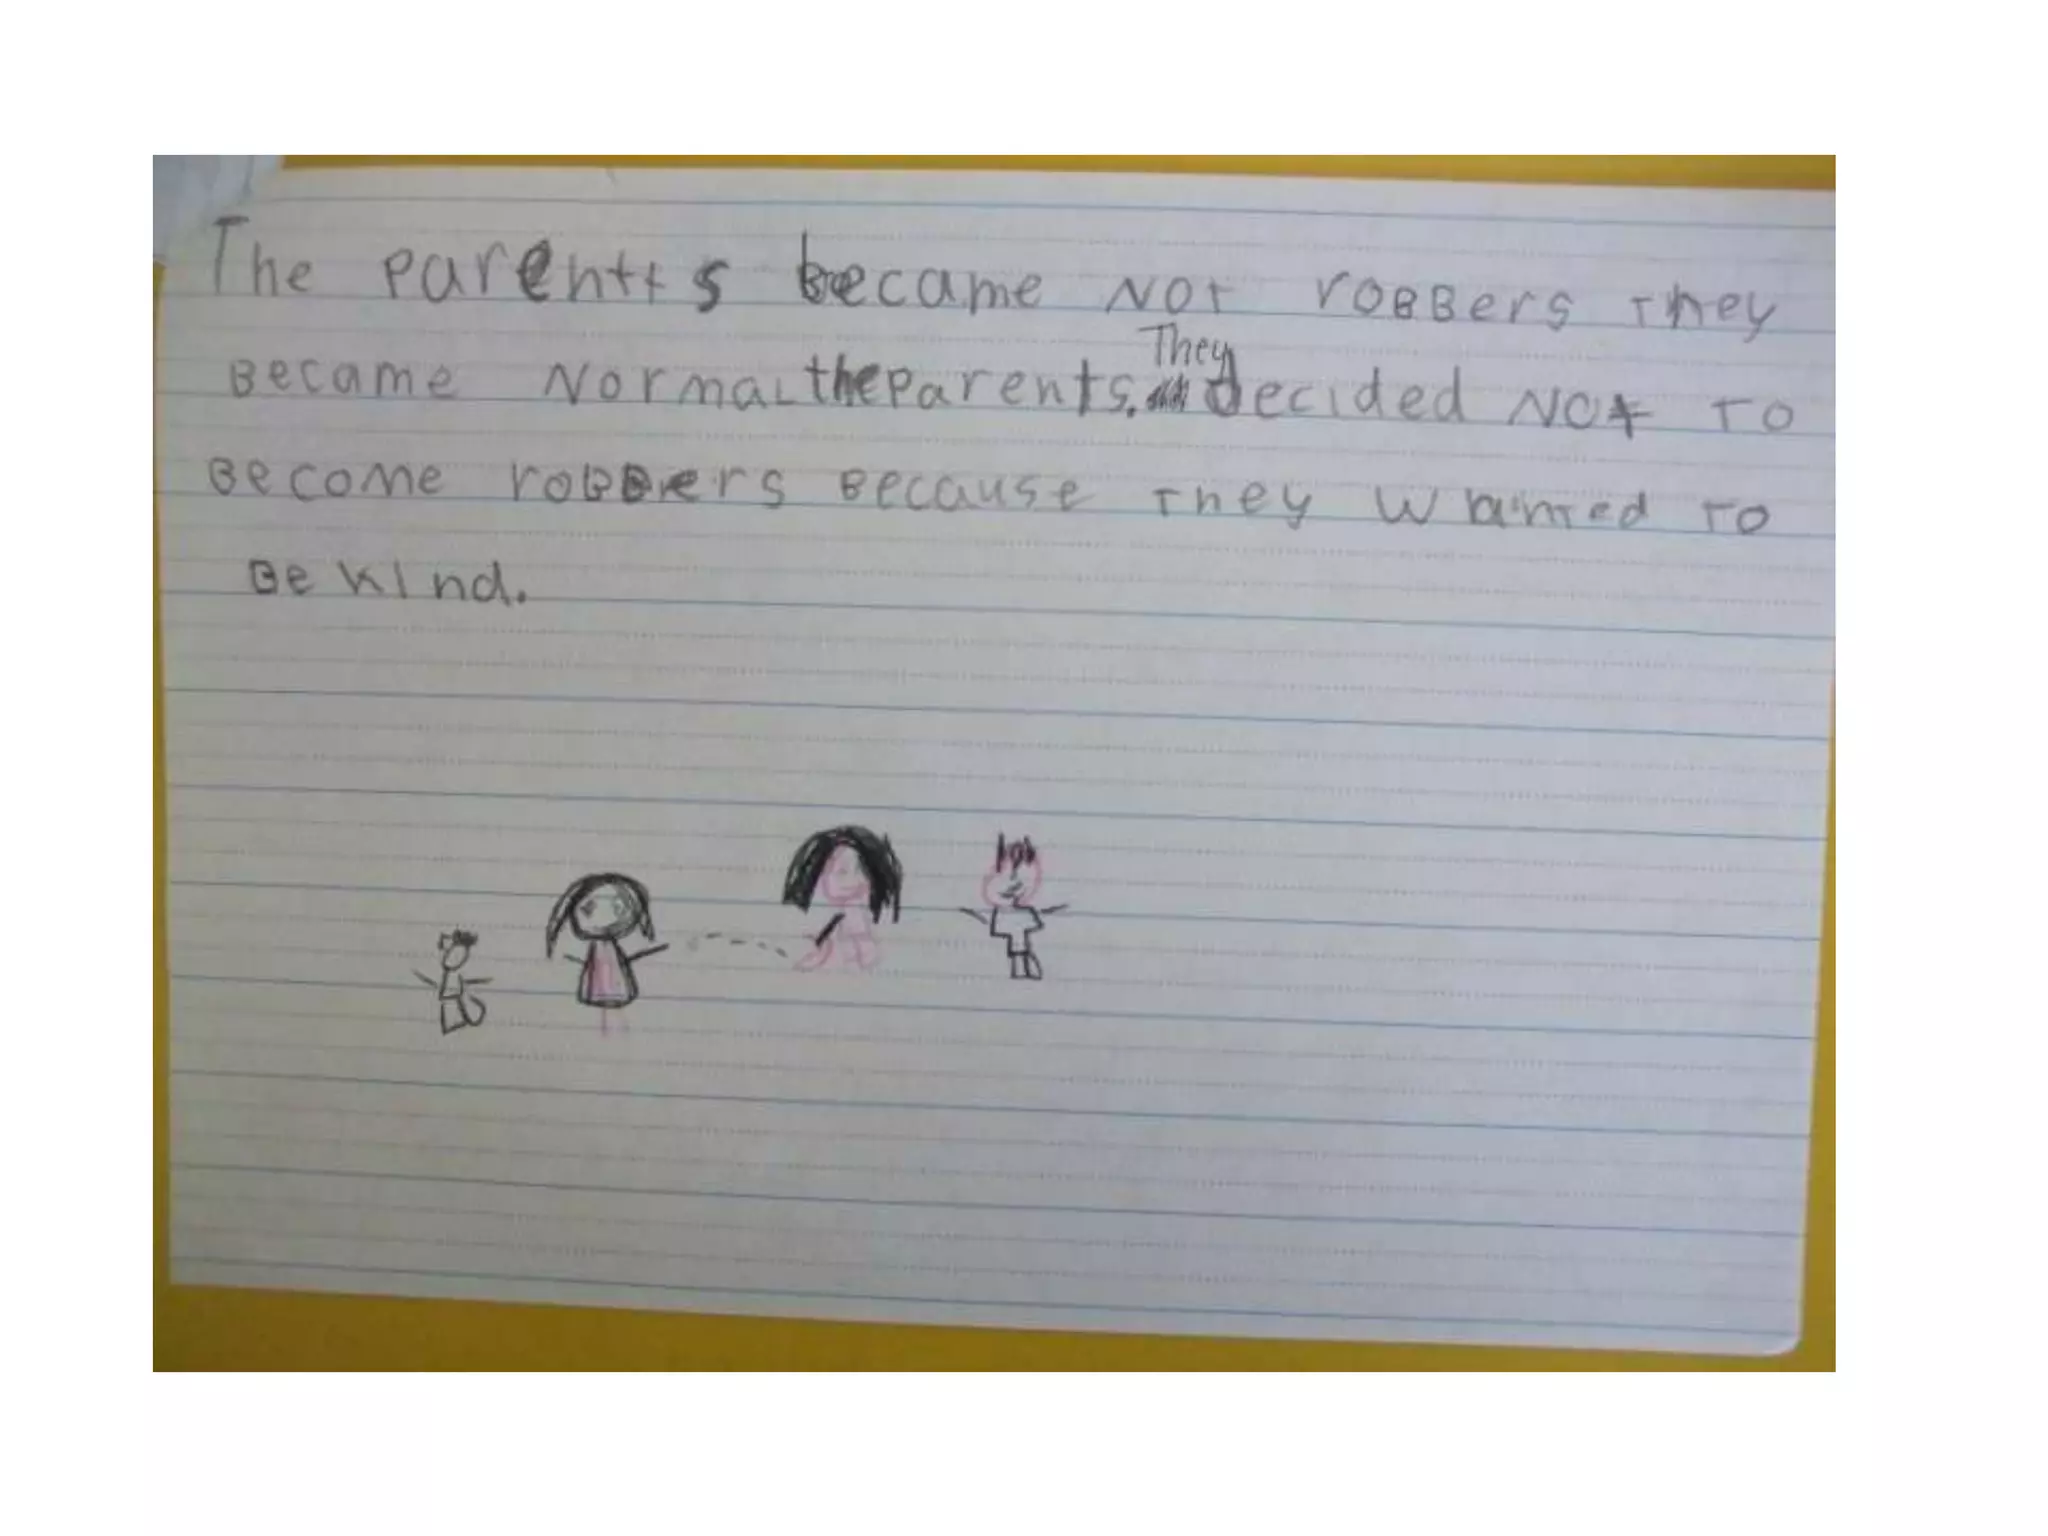 The parentts became NOT roBBers They
Became Normal the parents. They decided NOt TO
Become roBBers Because They Wanted TO
Be kind.